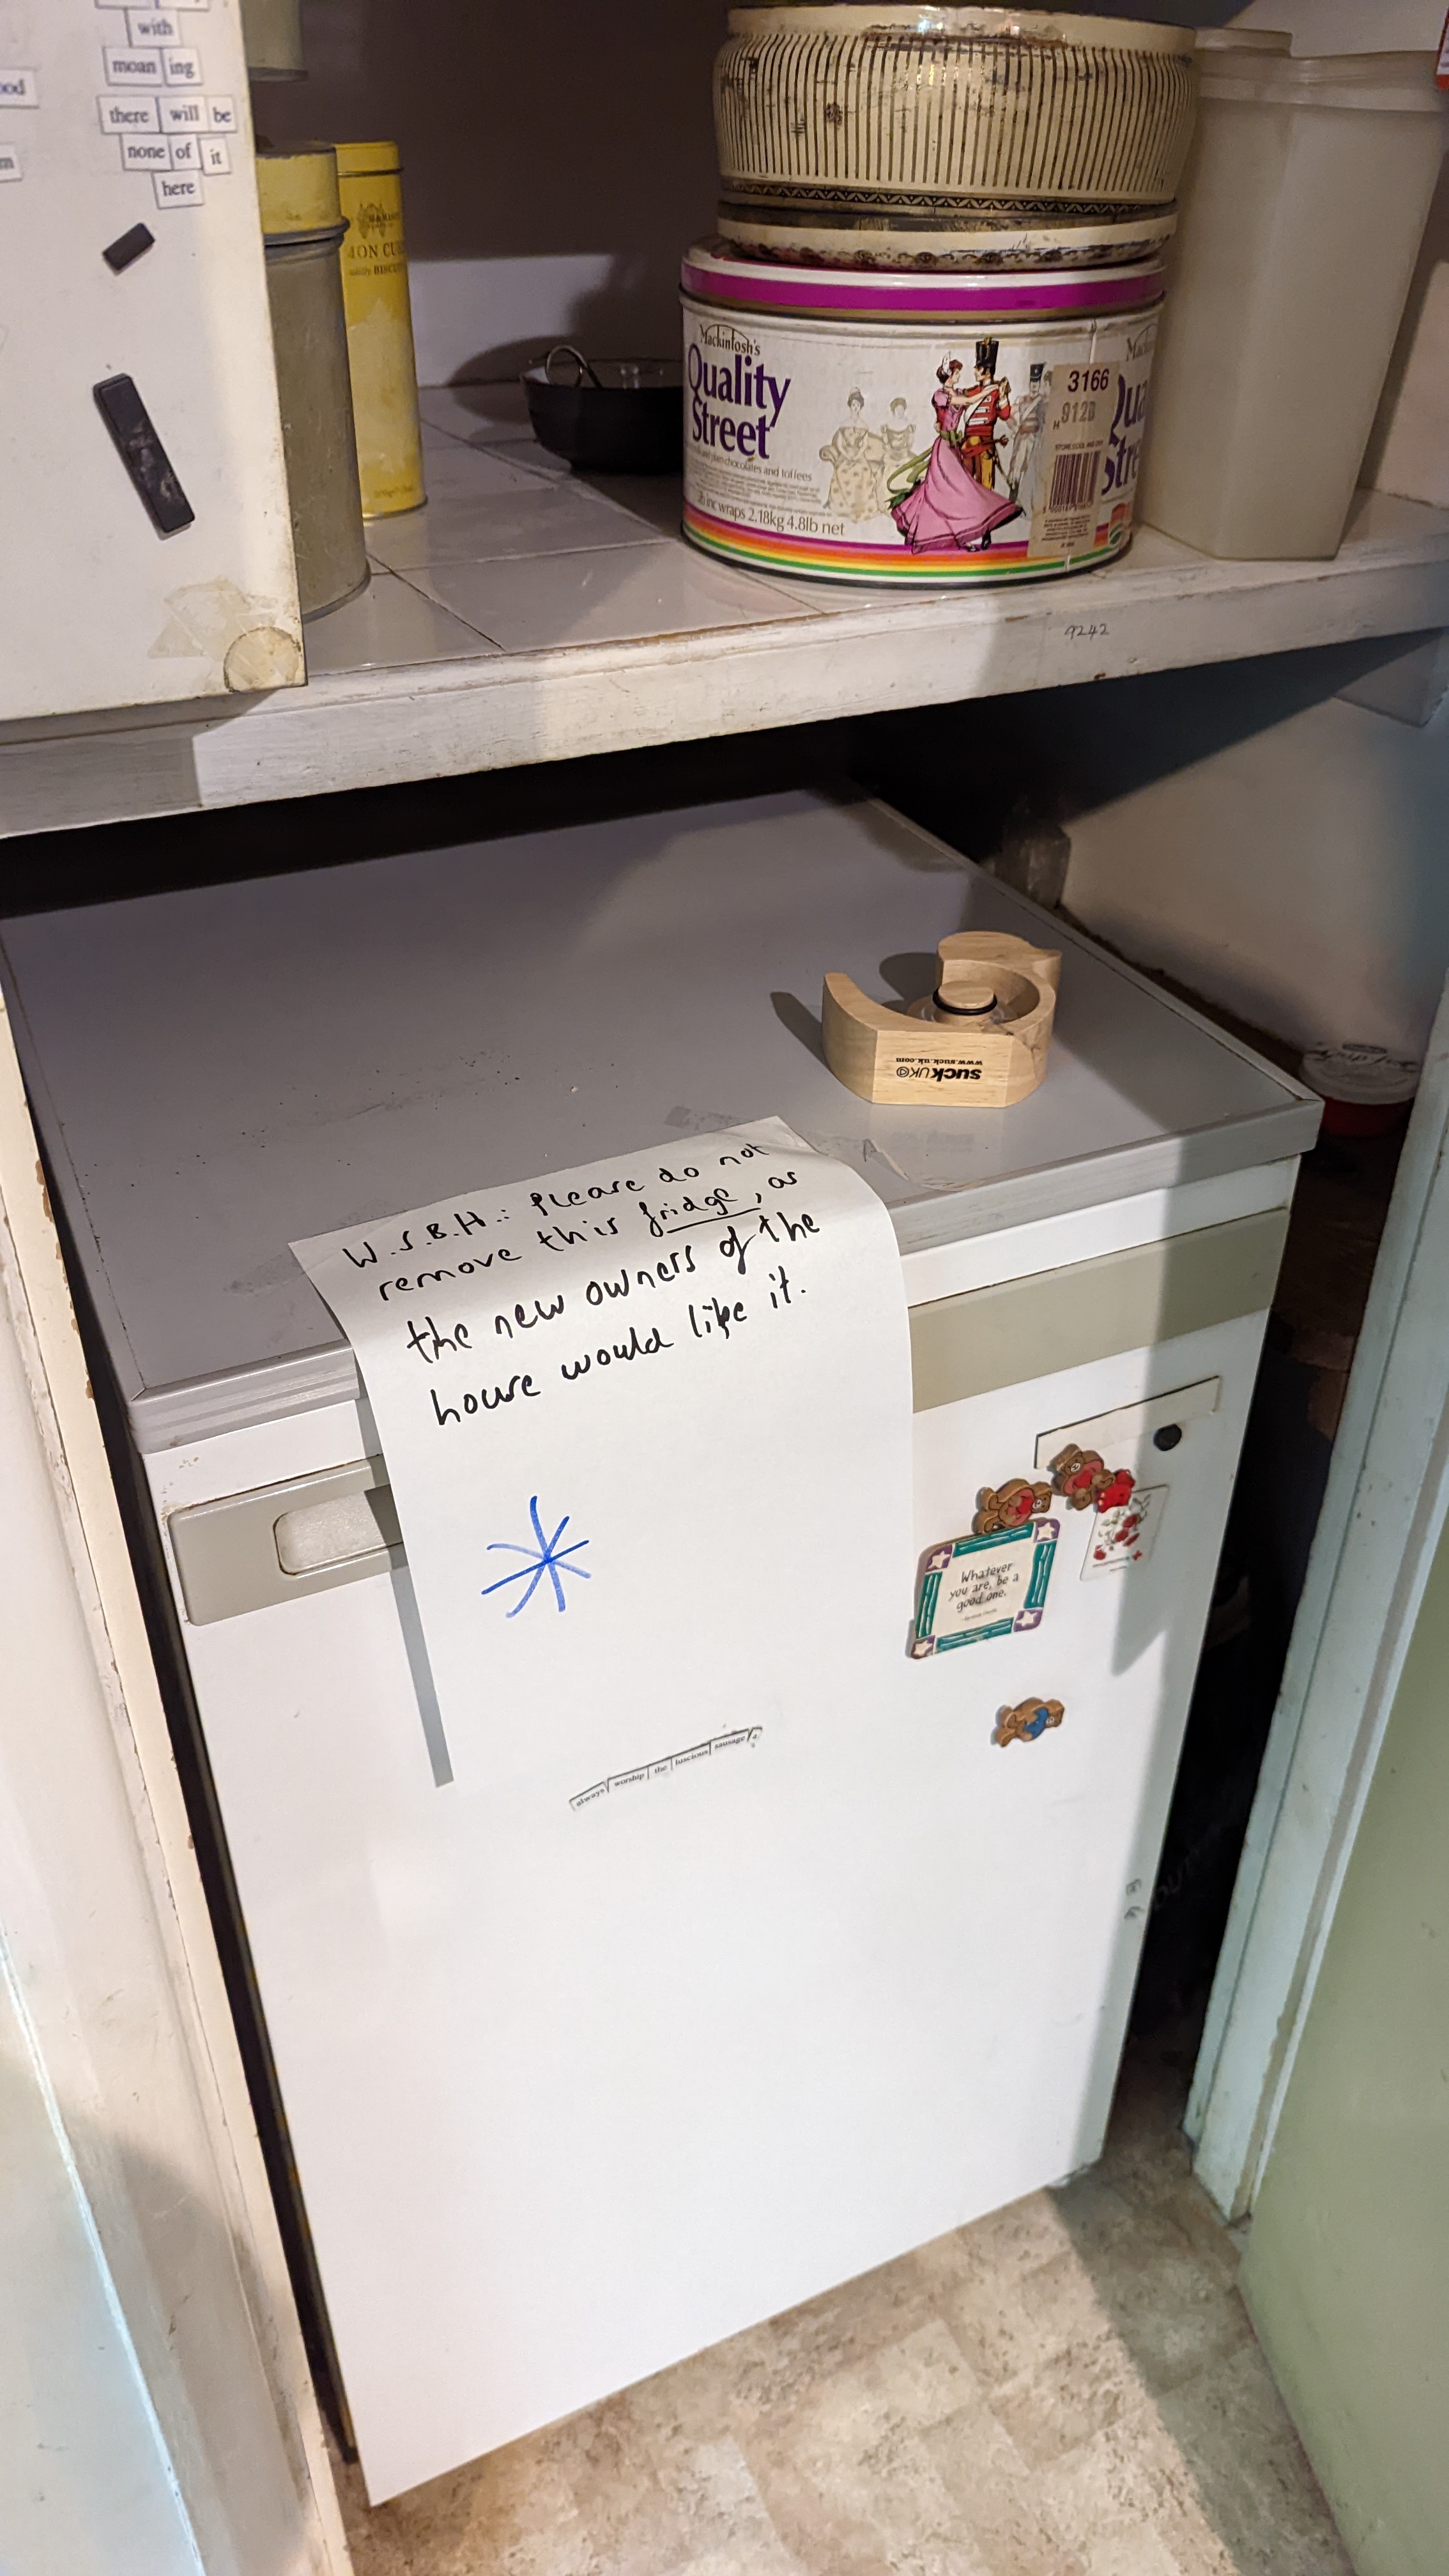 with
moan ing
there will be
none of it
here
ood
m
Mackintosh's
Quality
Street
chocolates and toffees
inc wraps 2.18kg 4.8lb net
3166
H 912B
STORE COOL AND DRY
Mackin
Qua
Stre
9242
suckUK
www.suck.uk.com
W.S.B.H.: Please do not
remove this fridge, as
the new owners of the
house would like it.
Whatever
you are, be a
good one.
always worship the luscious sausage